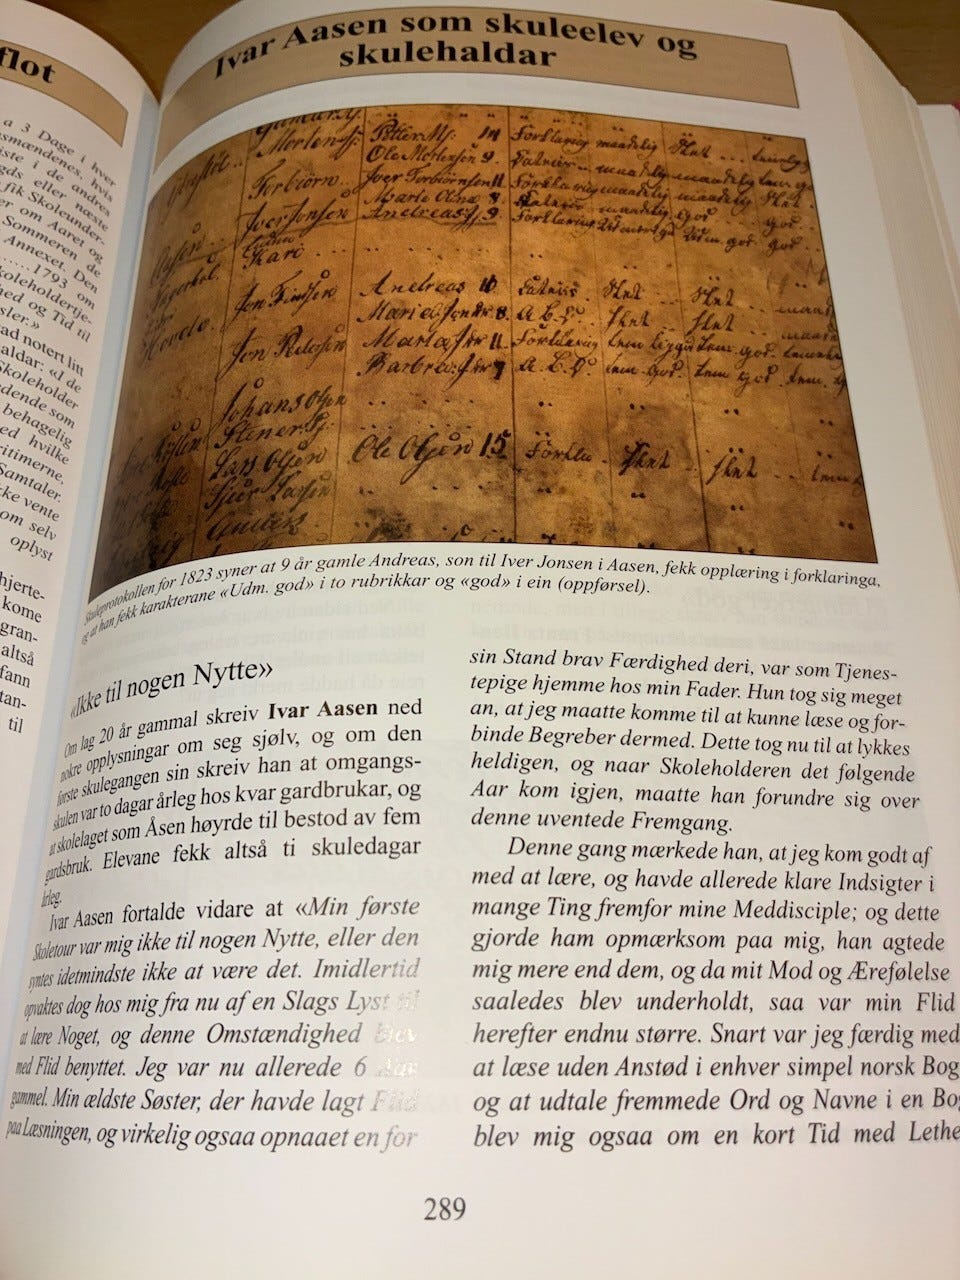 flot
a 3 Dage i hver
smændenes, hvis
iste i de andres
gds eller næste
fik Skoleunder-
er om Aaret og
Sommeren de
Annexet. Den
......1793 om
koleholdertje-
hed og Tid til
sler.»
ad notert litt
aldar: «I de
Skoleholder
dende som
behagelig
ed hvilke
ritimerne,
Samtaler.
ke vente
om selv
oplyst
hjerte-
kome
gran-
altså
fann
tan-
til
Ivar Aasen som skuleelev og
skulehaldar
Mortens Petter Ms: 14 Forklaring maadelig Slet
Ole Mortensen 9.
Torbiörn Iver Torbiörnsen 11 Forklaring maadelig
Marte Olns 8
Iver Jonsen Andreas J. 9 Forklaring Udm. god god
Kari
Jon Finsen Andreas 10 Slet Slet
A. B. C. Slet Slet
Jon Marta 11 Forklaring tem. god
Barbra A. B. C. tem. god. tem. god
Johans Olsen
Stener
Lars Olsen Ole Olsen 15 Forkla Slet Slet
Skuleprotokollen for 1823 syner at 9 år gamle Andreas, son til Iver Jonsen i Aasen, fekk opplæring i forklaringa,
og at han fekk karakterane «Udm. god» i to rubrikkar og «god» i ein (oppførsel).
«Ikke til nogen Nytte»
Om lag 20 år gammal skreiv Ivar Aasen ned
nokre opplysningar om seg sjølv, og om den
første skulegangen sin skreiv han at omgangs-
skulen var to dagar årleg hos kvar gardbrukar, og
at skolelaget som Åsen høyrde til bestod av fem
gardsbruk. Elevane fekk altså ti skuledagar
årleg.
Ivar Aasen fortalde vidare at «Min første
Skoletour var mig ikke til nogen Nytte, eller den
syntes idetmindste ikke at være det. Imidlertid
opvaktes dog hos mig fra nu af en Slags Lyst til
at lære Noget, og denne Omstændighed blev
med Flid benyttet. Jeg var nu allerede 6 Aar
gammel. Min ældste Søster, der havde lagt Flid
paa Læsningen, og virkelig ogsaa opnaaet en for
sin Stand brav Færdighed deri, var som Tjenes-
tepige hjemme hos min Fader. Hun tog sig meget
an, at jeg maatte komme til at kunne læse og for-
binde Begreber dermed. Dette tog nu til at lykkes
heldigen, og naar Skoleholderen det følgende
Aar kom igjen, maatte han forundre sig over
denne uventede Fremgang.
Denne gang mærkede han, at jeg kom godt af
med at lære, og havde allerede klare Indsigter i
mange Ting fremfor mine Meddisciple; og dette
gjorde ham opmærksom paa mig, han agtede
mig mere end dem, og da mit Mod og Ærefølelse
saaledes blev underholdt, saa var min Flid
herefter endnu større. Snart var jeg færdig med
at læse uden Anstød i enhver simpel norsk Bog
og at udtale fremmede Ord og Navne i en Bog
blev mig ogsaa om en kort Tid med Lethe
289